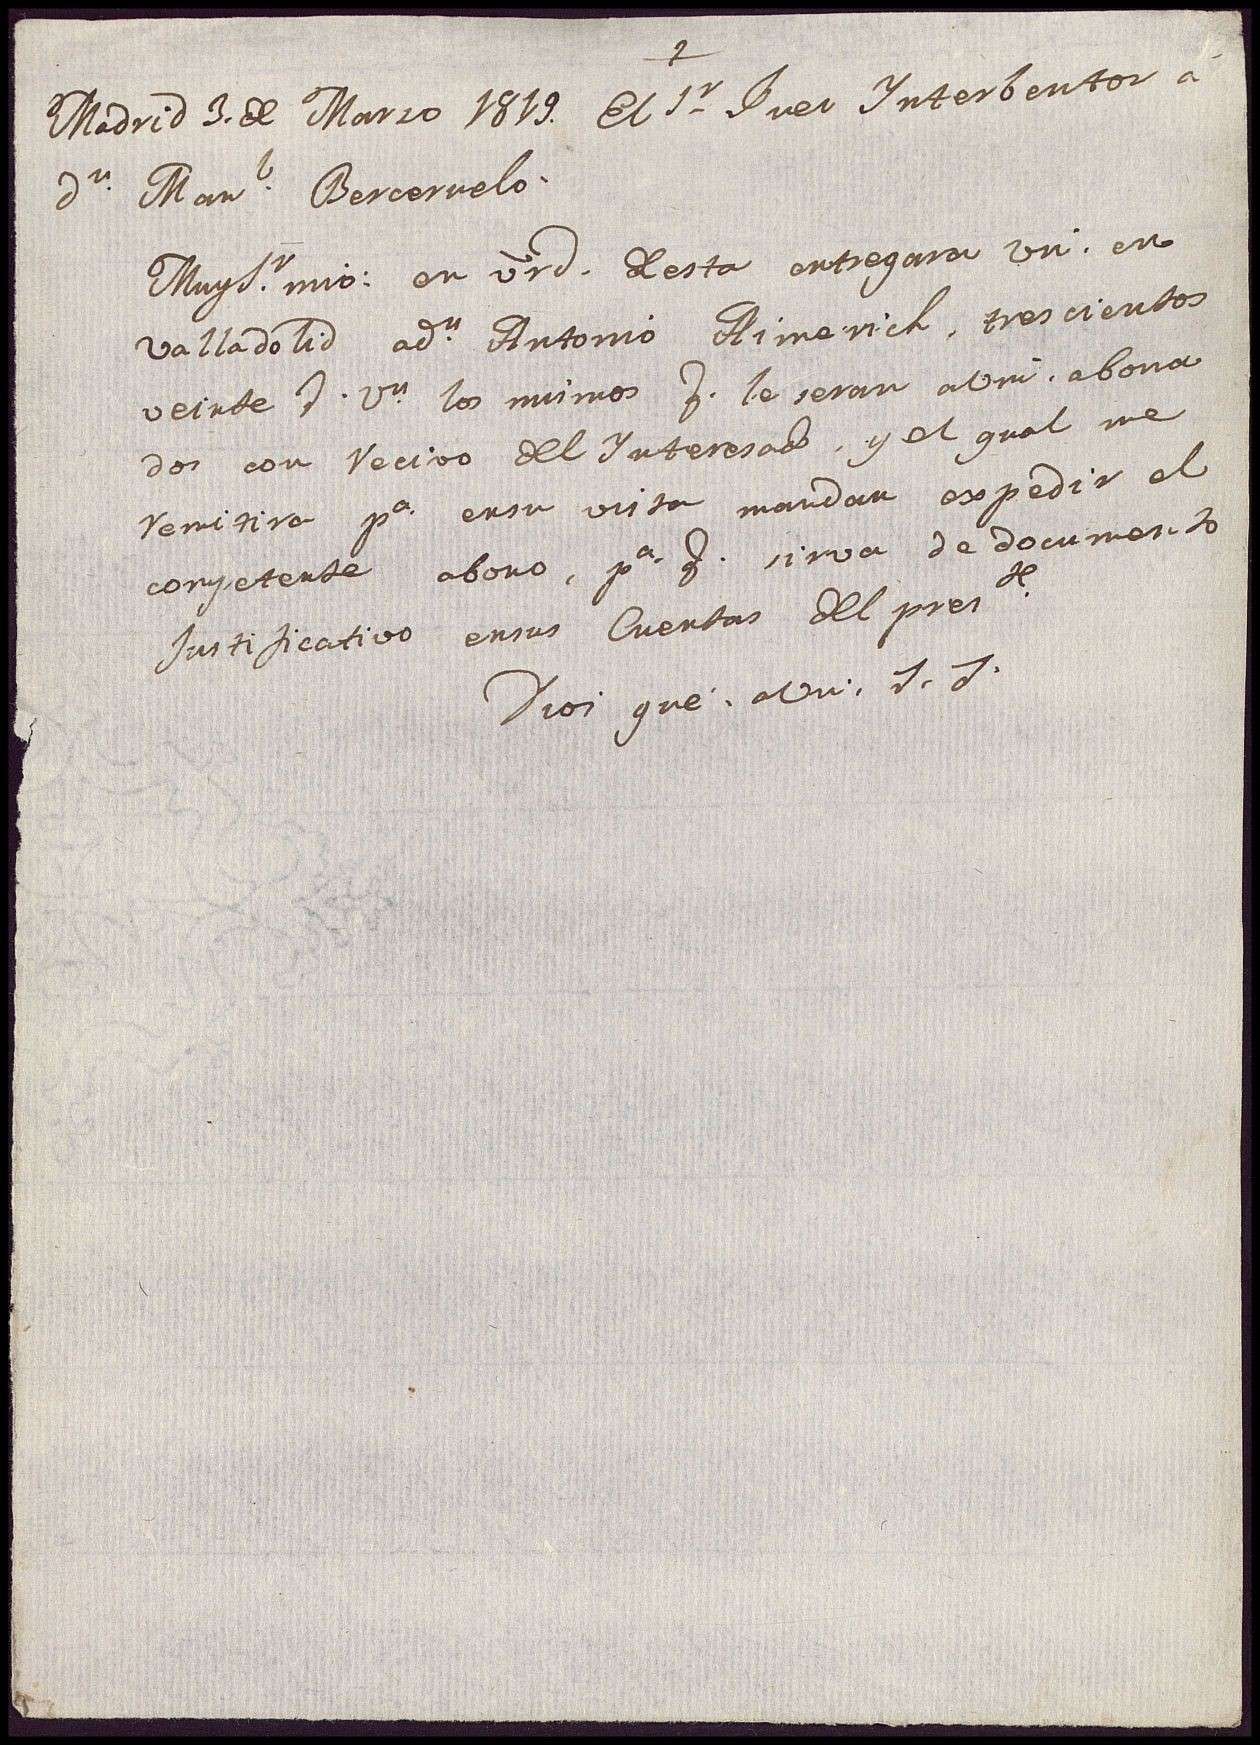 2
Madrid 3. de Marzo 1819. El Sr Juez Ynterbentor a
dn. Manl. Berceruelo.
Muy Sr. mio: en vrd. desta entregara Vm. en
Valladolid adn. Antonio Aimerich, trescientos
veinte rs. vn. los mismos q. le seran a Vm. abona
dos con recivo del Interesado, y el qual me
remitira pa. ensu vista mandar expedir el
competente abono, pa. q. sirva de documento
Justificativo ensus Cuentas del preste.
Dios gue. a Vm.